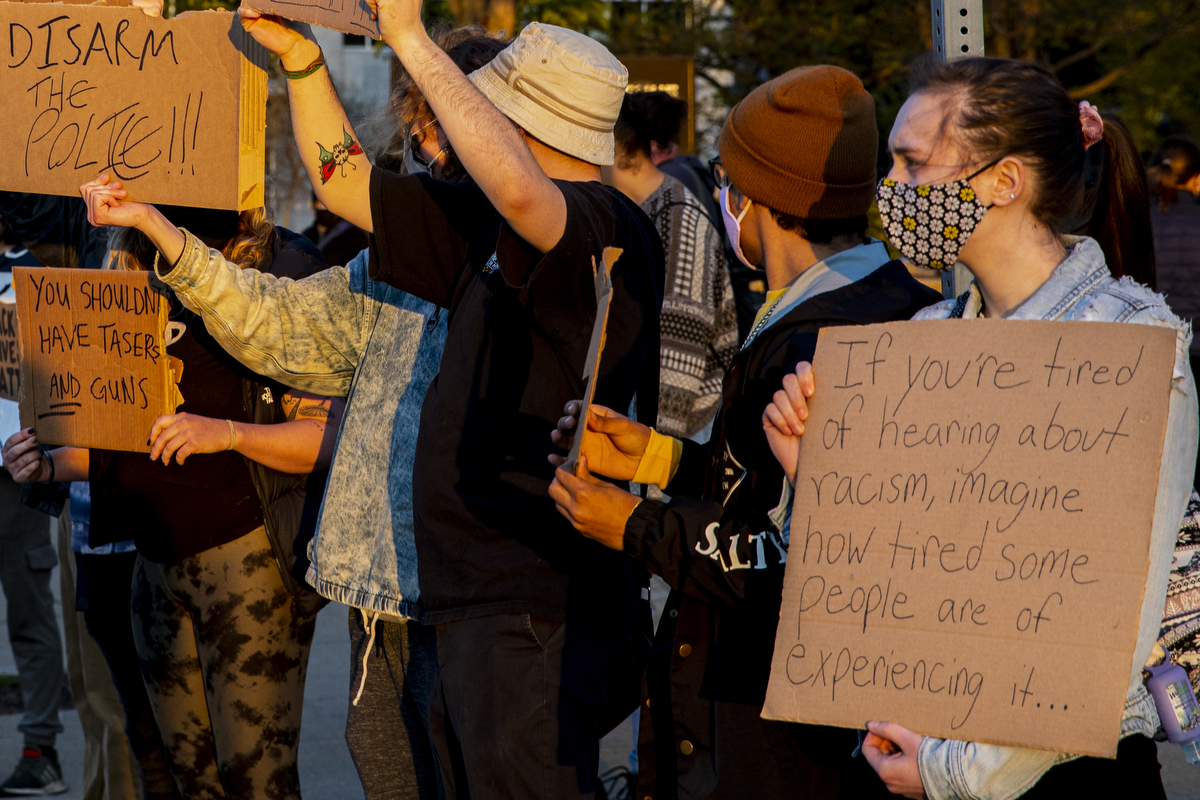 DISARM
THE
POLICE!!!
YOU SHOULDN'T
HAVE TASERS
AND GUNS
If you're tired
of hearing about
racism, imagine
how tired some
people are of
experiencing it....
SALTY